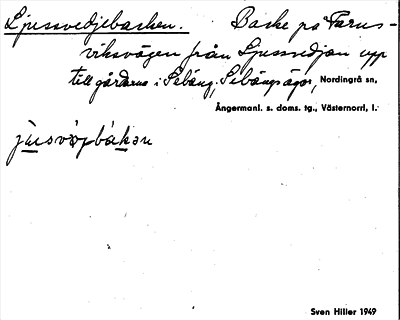 Ljussvedjebacken. Backe på Farus-
viksvägen från Ljussvedjan upp
till gårdarna i Sebäng, Sebängsägor, Nordingrå sn,
Ångermanl. s. doms. tg., Västernorrl, l.
Sven Hiller 1949